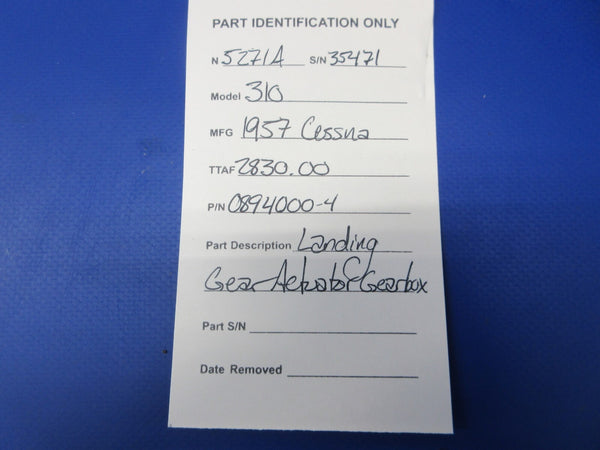 PART IDENTIFICATION ONLY
N 5271A S/N 35471
Model 310
MFG 1957 Cessna
TTAF 2830.00
P/N 0894000-4
Part Description Landing
Gear Actuator Gearbox
Part S/N
Date Removed